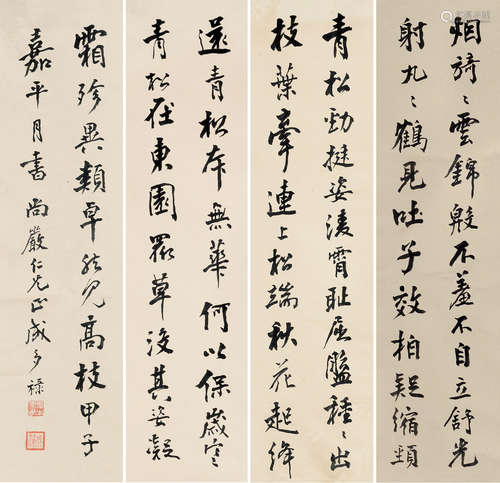 烟旖〻雲錦殷不羞不自立舒光
射丸〻鶴見吐子效柏疑縮頸
青松勁挺姿凌霄恥屈盤種〻出
枝葉牽連上松端秋花起絳
還青松本無華何以保歲寒
青松在東園眾草没其姿凝
霜殄異類卓然見高枝甲子
嘉平月書尚嚴仁兄正成多祿